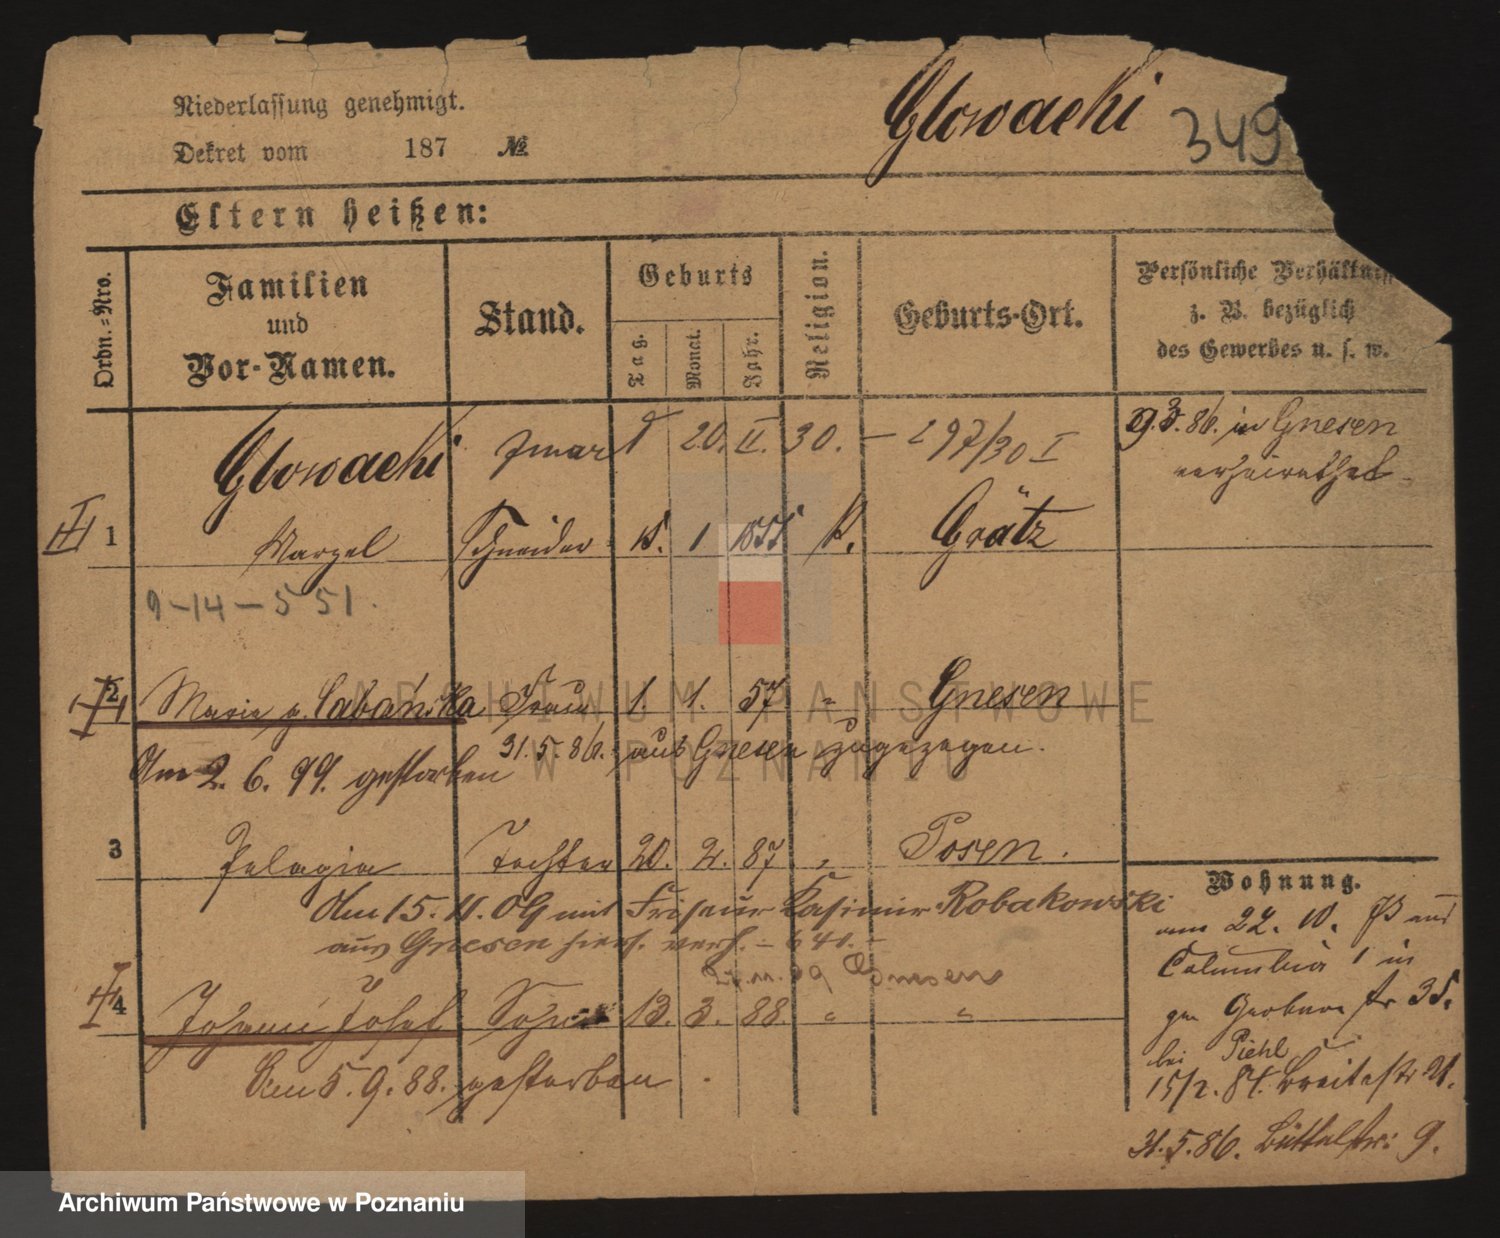 Niederlassung genehmigt.
Glowacki 349
Dekret vom 187 №
Eltern heißen:
Ordn.-Nro.
Familien
und
Vor-Namen.
Stand.
Geburts
Tag.
Monat.
Jahr.
Religion.
Geburts-Ort.
Persönliche Verhältniss
z. B. bezüglich
des Gewerbes u. s. w.
Glowacki zmarł 20. II. 30. – 297/30 I
29.3.86. in Gnesen
verheirathet
1 Marzel Schneider 15. 1 1855 k. Grätz
9-14-551.
2 Marie g. Cabańska Frau 1. 1. 57 " Gnesen
31.5.86. aus Gnesen zugezogen.
Am 2. 6. 99. gestorben
3 Pelagia Tochter 20. 2. 87 " Posen.
Am 15. 11. 09 mit Friseur Kasimir Robakowski
aus Gnesen hies. verh. – 640. –
09 Gnesen
4 Johann Josef Sohn 13. 3. 88. " "
Am 5. 9. 88. gestorben.
Wohnung.
am 22. 10. 73 aus
Columbia 1 in
Gerberstr 35.
bei Piehl
15/2. 84. Breitestr 21.
31.5.86. Büttelstr: 9.
ARCHIWUM PAŃSTWOWE
W POZNANIU
Archiwum Państwowe w Poznaniu